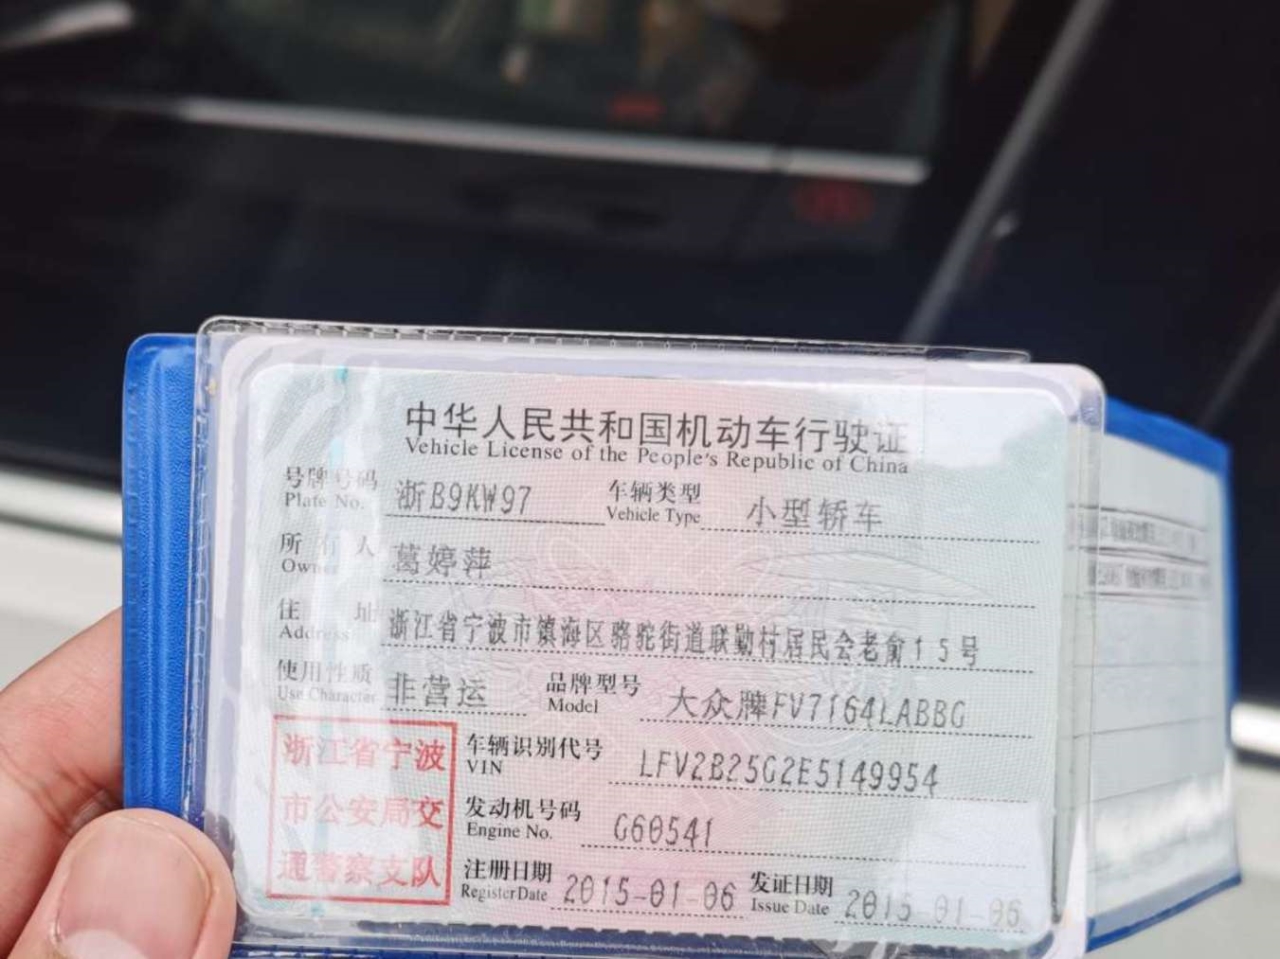 中华人民共和国机动车行驶证
Vehicle License of the People's Republic of China
号牌号码 浙B9KW97 车辆类型 小型轿车
Plate No. Vehicle Type
所有人 葛婷萍
Owner
住址 浙江省宁波市镇海区骆驼街道联勤村居民会老俞15号
Address
使用性质 非营运 品牌型号 大众牌FV7164LABBG
Use Character Model
浙江省宁波
市公安局交
通警察支队
车辆识别代号 LFV2B25G2E5149954
VIN
发动机号码 G60541
Engine No.
注册日期 2015-01-06 发证日期 2015-01-06
Register Date Issue Date